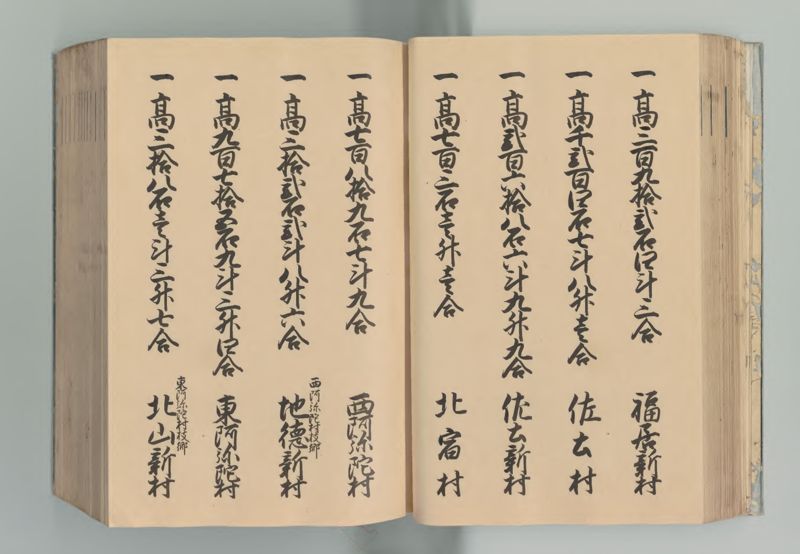 一高三百九拾弐石四斗三合 福居新村
一高千弐百四石七斗八升壱合 佐土村
一高弐百六拾八石六斗九升九合 佐土新村
一高七百三石壱升壱合 北宿村
一高七百八拾九石七斗九合 西阿弥陀村
一高三拾弐石弐斗八升六合 西阿弥陀村枝郷 地徳新村
一高九百七拾五石九斗三升四合 東阿弥陀村
一高三拾八石壱斗三升七合 東阿弥陀村枝郷 北山新村